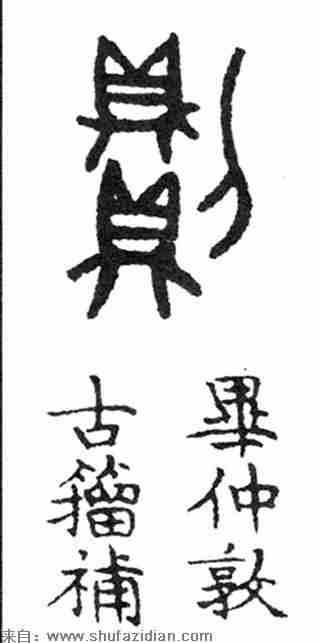 則
畢仲敦
古籀補
来自：www.shufazidian.com